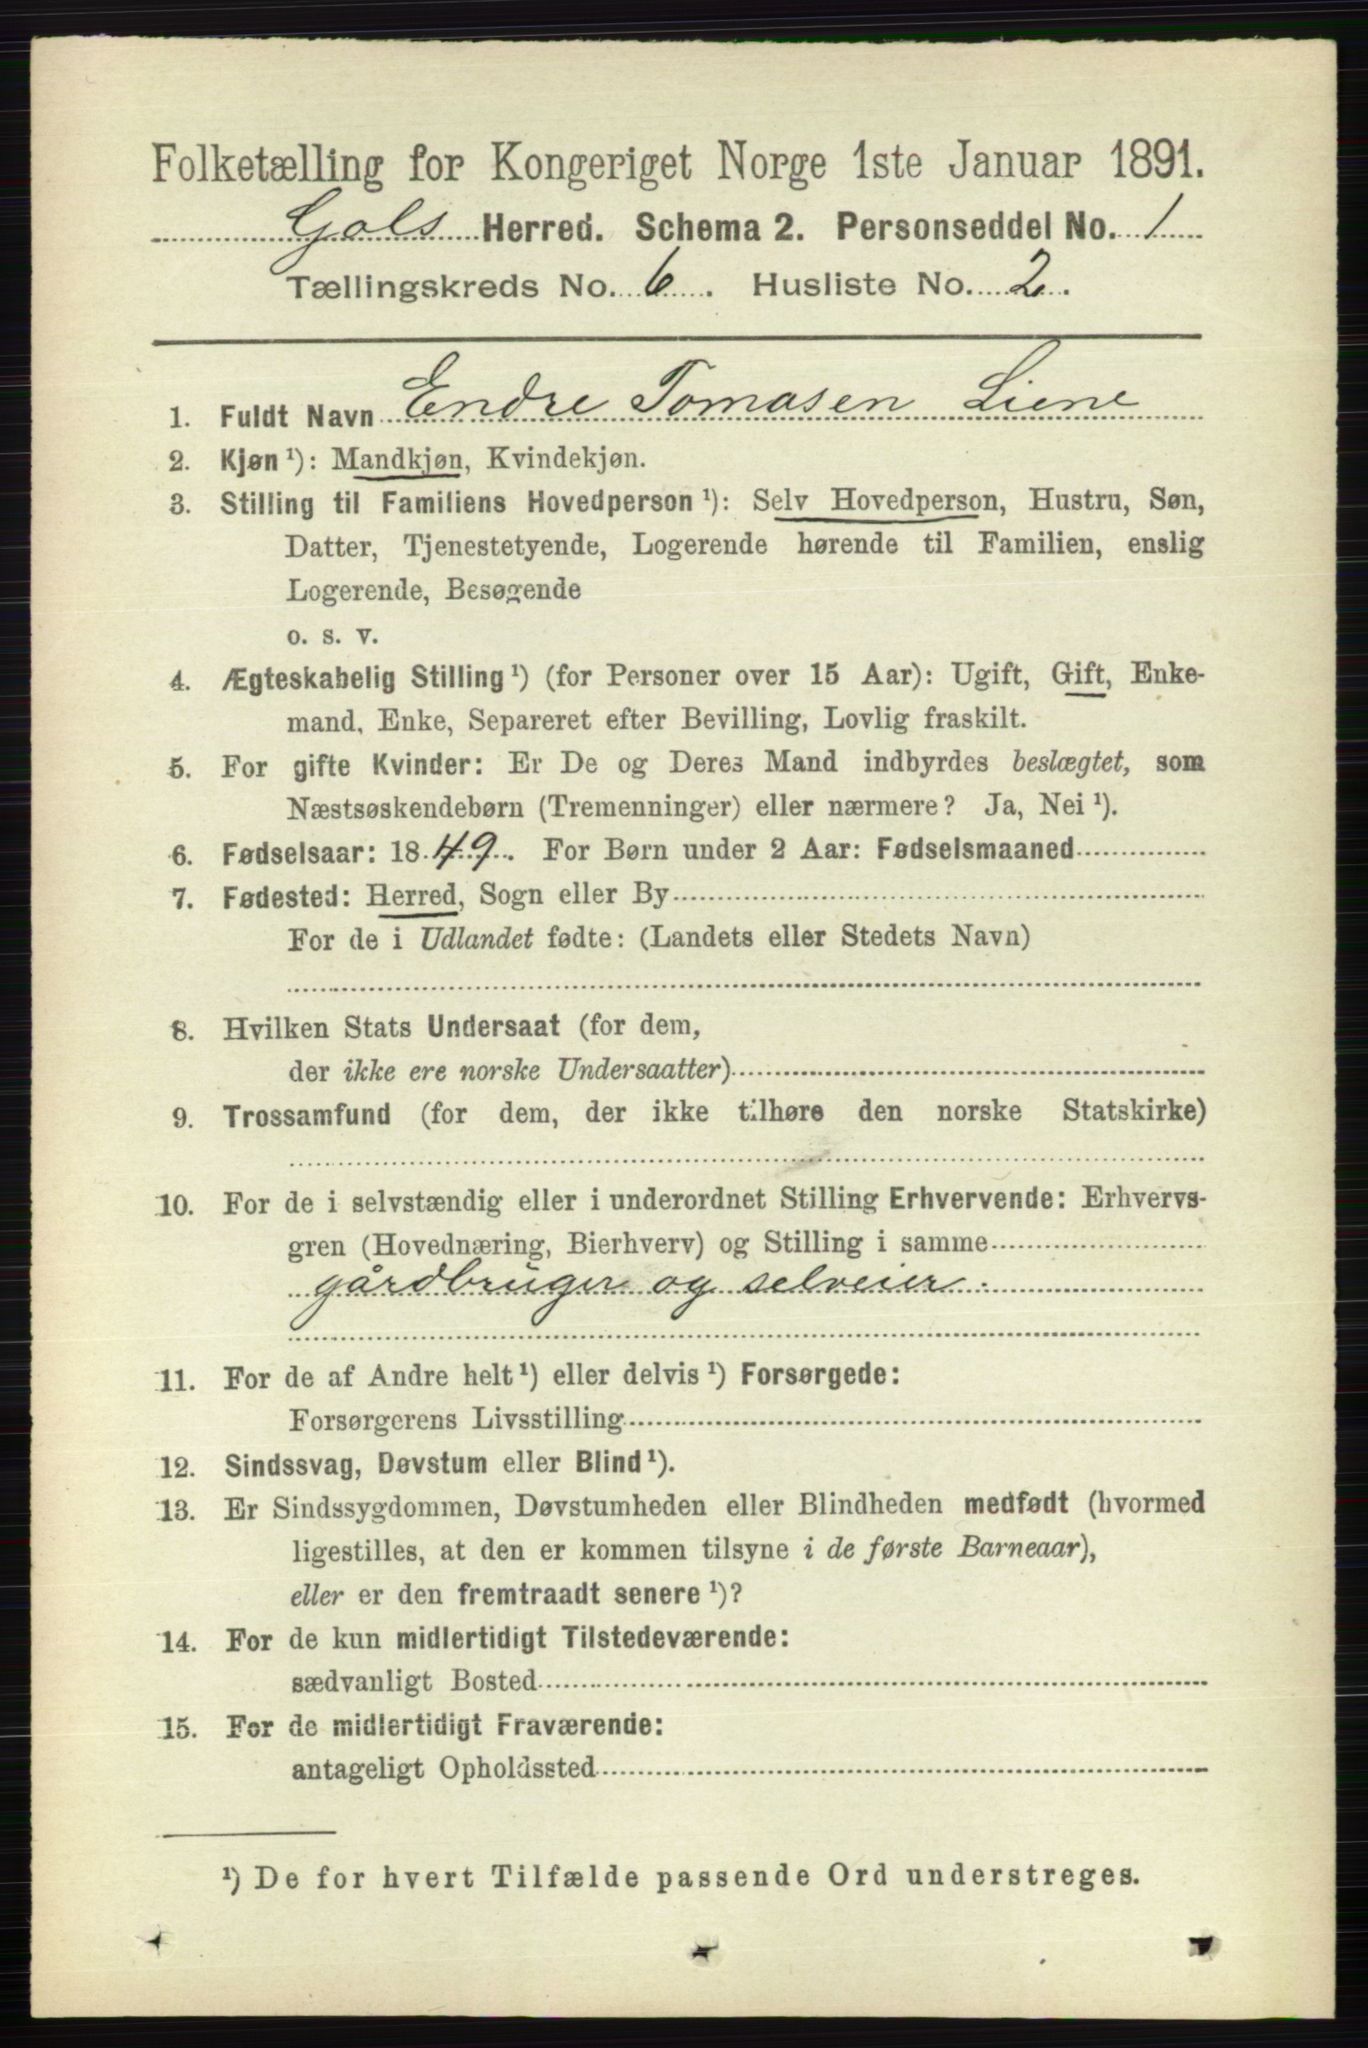 Folketælling for Kongeriget Norge 1ste Januar 1891.
Gols Herred. Schema 2. Personseddel No. 1
Tællingskreds No. 6. Husliste No. 2.
1. Fuldt Navn Endre Tomasen Liene
2. Kjøn¹): Mandkjøn, Kvindekjøn.
3. Stilling til Familiens Hovedperson¹): Selv Hovedperson, Hustru, Søn,
Datter, Tjenestetyende, Logerende hørende til Familien, enslig
Logerende, Besøgende
o. s. v.
4. Ægteskabelig Stilling¹) (for Personer over 15 Aar): Ugift, Gift, Enke-
mand, Enke, Separeret efter Bevilling, Lovlig fraskilt.
5. For gifte Kvinder: Er De og Deres Mand indbyrdes beslægtet, som
Næstsøskendebørn (Tremenninger) eller nærmere? Ja, Nei¹).
6. Fødselsaar: 1849. For Børn under 2 Aar: Fødselsmaaned
7. Fødested: Herred, Sogn eller By
For de i Udlandet fødte: (Landets eller Stedets Navn)
8. Hvilken Stats Undersaat (for dem,
der ikke ere norske Undersaatter)
9. Trossamfund (for dem, der ikke tilhøre den norske Statskirke)
10. For de i selvstændig eller i underordnet Stilling Erhvervende: Erhvervs-
gren (Hovednæring, Bierhverv) og Stilling i samme
gårdbruger og selveier.
11. For de af Andre helt¹) eller delvis¹) Forsørgede:
Forsørgerens Livsstilling
12. Sindssvag, Døvstum eller Blind¹).
13. Er Sindssygdommen, Døvstumheden eller Blindheden medfødt (hvormed
ligestilles, at den er kommen tilsyne i de første Barneaar),
eller er den fremtraadt senere¹)?
14. For de kun midlertidigt Tilstedeværende:
sædvanligt Bosted
15. For de midlertidigt Fraværende:
antageligt Opholdssted
¹) De for hvert Tilfælde passende Ord understreges.